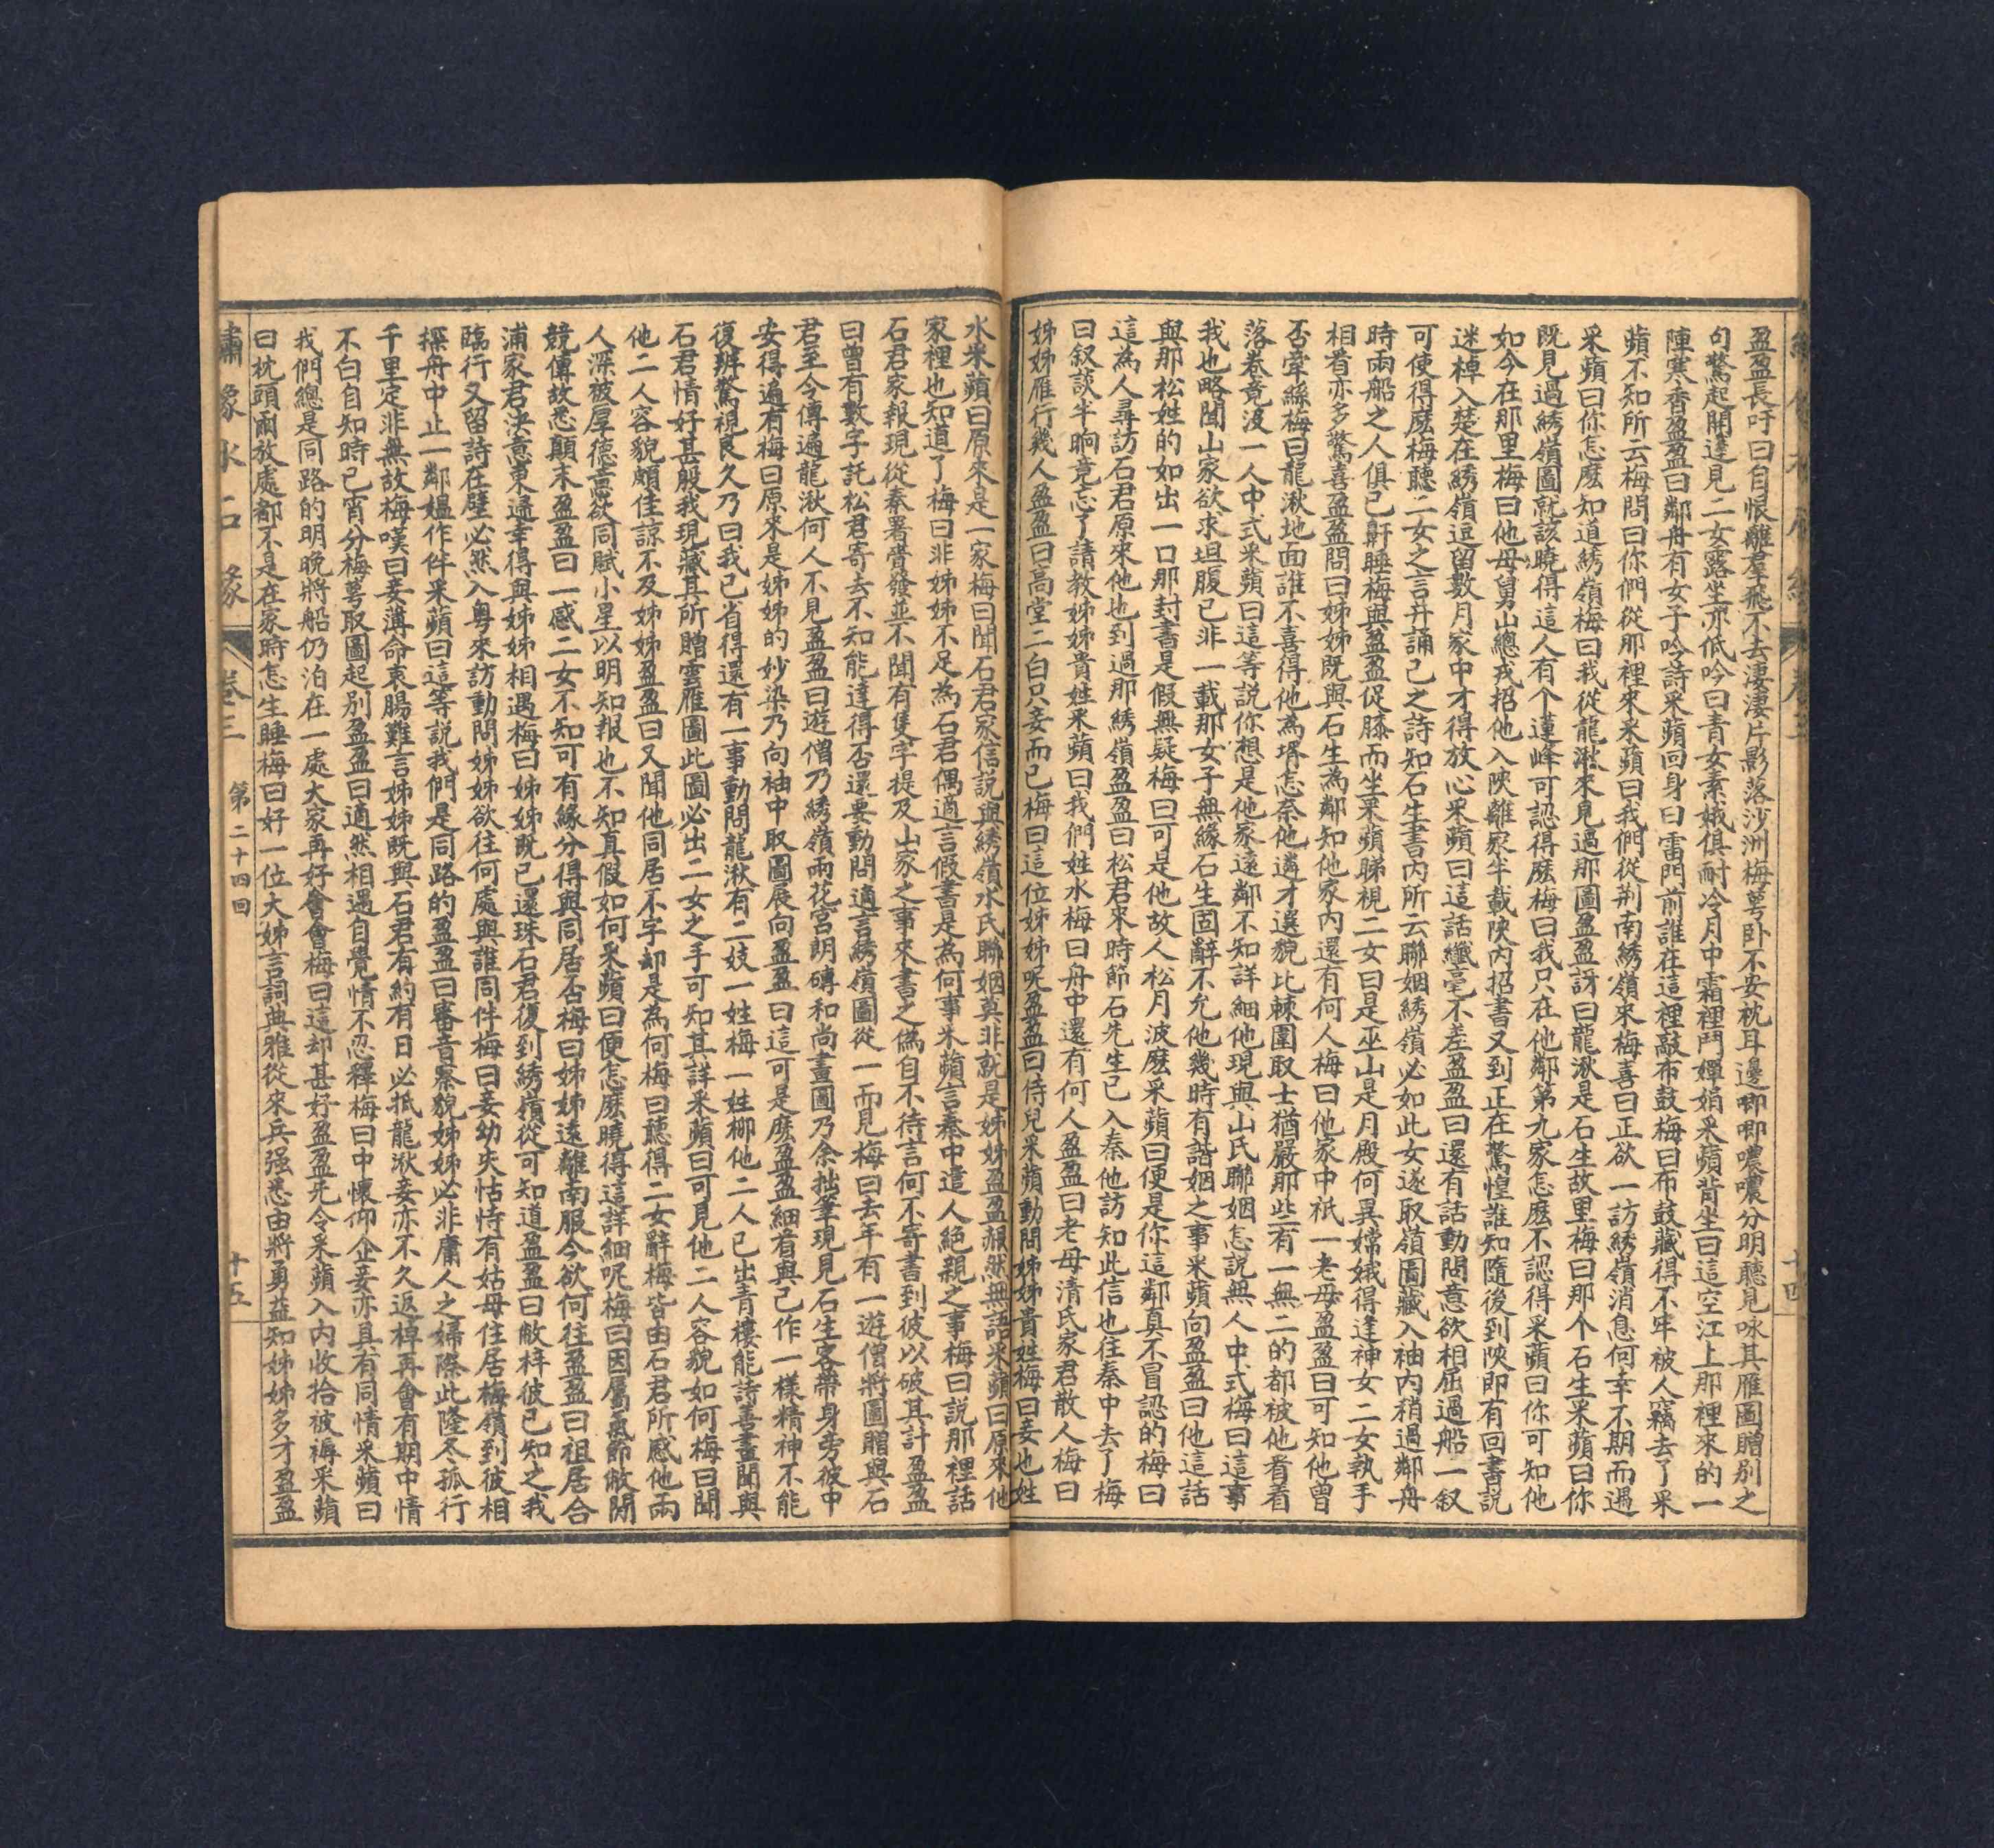 盈盈長吁曰自恨離羣飛不去淒淒片影落沙洲梅萼卧不安枕耳邊唧唧噥噥分明聽見咏其雁圖贈别之
句驚起開篷見二女露坐亦低吟曰青女素娥俱耐冷月中霜裡鬥嬋娟采蘋背坐曰這空江上那裡來的一
陣寒香盈盈曰鄰舟有女子吟詩采蘋回身曰雷門前誰在這裡敲布鼓梅曰布鼓藏得不牢被人竊去了采
蘋不知所云梅問曰你們從那裡來采蘋曰我們從荆南綉嶺來梅喜曰正欲一訪綉嶺消息何幸不期而遇
采蘋曰你怎麽知道綉嶺梅曰我從龍湫來見過那圖盈盈訝曰龍湫是石生故里梅曰那个石生采蘋曰你
既見過綉嶺圖就該曉得這人有个蓮峰可認得麽梅曰我只在他鄰第九家怎麽不認得采蘋曰你可知他
如今在那里梅曰他母舅山總戎招他入陝離家半載陝内招書又到正在驚惶誰知隨後到陝即有回書説
迷棹入楚在綉嶺逗留數月家中才得放心采蘋曰這話纖毫不差盈盈曰還有話動問意欲相屈過船一叙
可使得麽梅聽二女之言并誦己之詩知石生書内所云聯姻綉嶺必如此女遂取嶺圖藏入袖内稍過鄰舟
時兩船之人俱已鼾睡梅與盈盈促膝而坐采蘋睇視二女曰是巫山是月殿何異嫦娥得逢神女二女執手
相看亦多驚喜盈盈問曰姊姊既與石生為鄰知他家内還有何人梅曰他家中衹一老母盈盈曰可知他曾
否牽絲梅曰龍湫地面誰不喜得他為壻怎奈他遴才選貌比棘圍取士猶嚴那些有一無二的都被他看着
落卷竟没一人中式采蘋曰這等説你想是他家遠鄰不知詳細他現與山氏聯姻怎説無人中式梅曰這事
我也略聞山家欲求坦腹已非一載那女子無緣石生固辭不允他幾時有諧姻之事采蘋向盈盈曰他這話
與那松姓的如出一口那封書是假無疑梅曰可是他故人松月波麽采蘋曰便是你這鄰真不冒認的梅曰
這為人尋訪石君原來他也到過那綉嶺盈盈曰松君來時節石先生已入秦他訪知此信也往秦中去了梅
曰叙談半晌竟忘了請教姊姊貴姓采蘋曰我們姓水梅曰舟中還有何人盈盈曰老母清氏家君散人梅曰
姊姊雁行幾人盈盈曰高堂二白只妾而已梅曰這位姊姊呢盈盈曰侍兒采蘋動問姊姊貴姓梅曰妾也姓
水采蘋曰原來是一家梅曰聞石君家信説與綉嶺水氏聯姻莫非就是姊姊盈盈赧然無語采蘋曰原來他
家裡也知道了梅曰非姊姊不足為石君偶適言假書是為何事采蘋言秦中遣人絶親之事梅曰説那裡話
石君家報現從秦署賫發並不聞有隻字提及山家之事來書之偽自不待言何不寄書到彼以破其計盈盈
曰曾有數字託松君寄去不知能達得否還要動問適言綉嶺圖從一而見梅曰去年有一遊僧將圖贈與石
君至今傳遍龍湫何人不見盈盈曰遊僧乃綉嶺雨花宮朗磚和尚畫圖乃余拙筆現見石生客帶身旁彼中
安得遍有梅曰原來是姊姊的妙染乃向袖中取圖展向盈盈曰這可是麽盈盈細看與己作一樣精神不能
復辨驚視良久乃曰我已省得還有一事動問龍湫有二妓一姓梅一姓柳他二人已出青樓能詩善畫聞與
石君情好甚殷我現藏其所贈雲雁圖此圖必出二女之手可知其詳采蘋曰可見他二人容貌如何梅曰聞
他二人容貌頗佳諒不及姊姊盈盈曰又聞他同居不字却是為何梅曰聽得二女辭梅皆由石君所感他兩
人深被厚德意欲同賦小星以明知報也不知真假如何采蘋曰便怎麽曉得這詳細呢梅曰因屬氣節敝閈
競傳故悉顛末盈盈曰一感二女不知可有緣分得與同居否梅曰姊姊遠離南服今欲何往盈盈曰祖居合
浦家君决意東歸幸得與姊姊相遇梅曰姊姊既已還珠石君復到綉嶺從可知道盈盈曰敝梓彼已知之我
臨行又留詩在壁必然入粤來訪動問姊姊欲往何處與誰同伴梅曰妾幼失怙恃有姑母住居梅嶺到彼相
探舟中止一鄰媪作伴采蘋曰這等説我們是同路的盈盈曰審音察貌姊姊必非庸人之婦際此隆冬孤行
千里定非無故梅嘆曰妾薄命衷腸難言姊姊既與石君有約有日必抵龍湫妾亦不久返棹再會有期中情
不白自知時已宵分梅萼取圖起别盈盈曰適然相遇自覺情不忍釋梅曰中懷仰企妾亦具有同情采蘋曰
我們總是同路的明晚將船仍泊在一處大家再好會會梅曰這却甚好盈盈先令采蘋入内收拾被褥采蘋
曰枕頭兩放處都不是在家時怎生睡梅曰好一位大姊言詞典雅從來兵强悉由將勇益知姊姊多才盈盈
繡像水石緣 卷三 第二十四回 十五